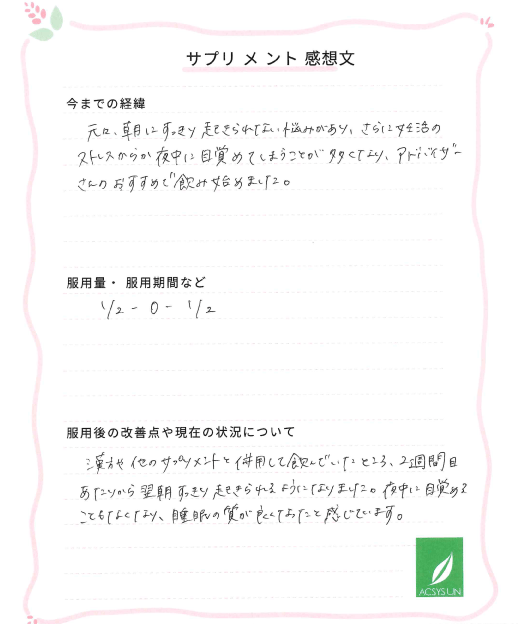 サプリメント感想文
今までの経緯
元々、朝にすっきり起きられない悩みがあり、さらに妊活の
ストレスからか夜中に目覚めてしまうことが多くなり、アドバイザー
さんのおすすめで飲み始めました。
服用量・服用期間など
1/2 - 0 - 1/2
服用後の改善点や現在の状況について
漢方や他のサプリメントと併用して飲んでいたところ、2週間目
あたりから翌朝すっきり起きられるようになりました。夜中に目覚める
こともなくなり、睡眠の質が良くなったと感じています。
ACSYS LIN